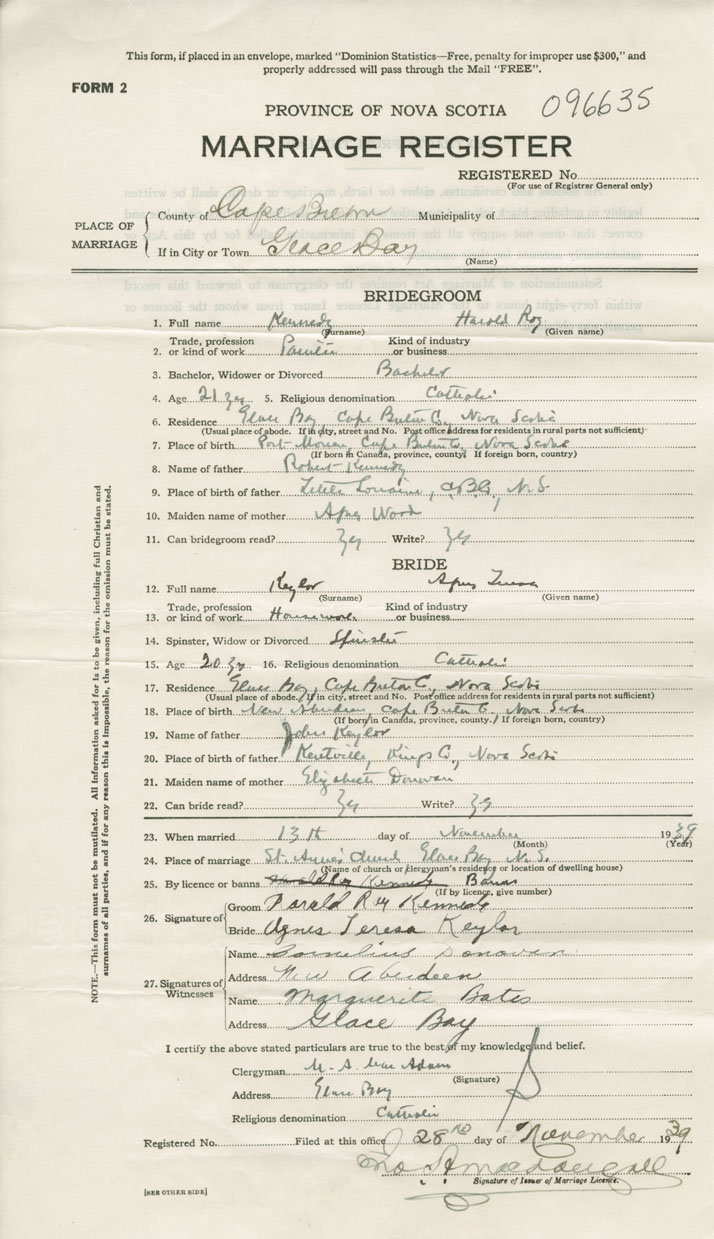 This form, if placed in an envelope, marked "Dominion Statistics—Free, penalty for improper use $300," and
properly addressed will pass through the Mail "FREE".
FORM 2
PROVINCE OF NOVA SCOTIA 096635
MARRIAGE REGISTER
REGISTERED No.
(For use of Registrar General only)
PLACE OF MARRIAGE
County of Cape Breton Municipality of
If in City or Town Glace Bay
(Name)
BRIDEGROOM
1. Full name Kennedy Harold Roy
(Surname) (Given name)
Trade, profession Kind of industry
2. or kind of work Painter or business
3. Bachelor, Widower or Divorced Bachelor
4. Age 21 yrs 5. Religious denomination Catholic
6. Residence Glace Bay Cape Breton C., Nova Scotia
(Usual place of abode. If in city, street and No. Post office address for residents in rural parts not sufficient)
7. Place of birth Port Morien, Cape Breton C. Nova Scotia
(If born in Canada, province, county. If foreign born, country)
8. Name of father Robert Kennedy
9. Place of birth of father Little Lorraine, C.B.C, N.S.
10. Maiden name of mother Agnes Wood
11. Can bridegroom read? Yes Write? Yes
BRIDE
12. Full name Keylor Agnes Teresa
(Surname) (Given name)
Trade, profession Kind of industry
13. or kind of work Housework or business
14. Spinster, Widow or Divorced Spinster
15. Age 20 yrs 16. Religious denomination Catholic
17. Residence Glace Bay, Cape Breton C., Nova Scotia
(Usual place of abode. If in city, street and No. Post office address for residents in rural parts not sufficient)
18. Place of birth New Aberdeen, Cape Breton C. Nova Scotia
(If born in Canada, province, county. If foreign born, country)
19. Name of father John Keylor
20. Place of birth of father Kentville, Kings C., Nova Scotia
21. Maiden name of mother Elizabeth Donovan
22. Can bride read? Yes Write? Yes
23. When married 13th day of November 1939
(Month) (Year)
24. Place of marriage St. Anne's Church Glace Bay N.S.
(Name of church or clergyman's residence or location of dwelling house)
25. By licence or banns Harold Roy Kennedy Banns
(If by licence, give number)
26. Signature of
Groom Harold Roy Kennedy
Bride Agnes Teresa Keylor
27. Signatures of Witnesses
Name Cornelius Donovan
Address N.W Aberdeen
Name Marguerite Bates
Address Glace Bay
I certify the above stated particulars are true to the best of my knowledge and belief.
Clergyman M. A. MacAdam
(Signature)
Address Glace Bay
Religious denomination Catholic
Registered No. Filed at this office 28th day of November 1939
Signature of Issuer of Marriage Licence.
[SEE OTHER SIDE]
NOTE.—This form must not be mutilated. All Information asked for is to be given, including full Christian and
surnames of all parties, and if for any reason this is impossible, the reason for the omission must be stated.